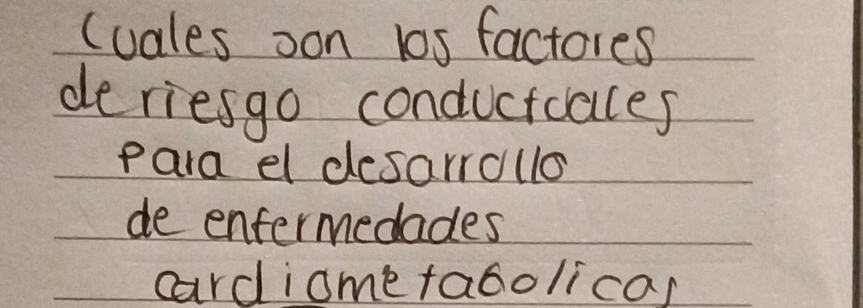 Cuales son los factores
de riesgo conductuales
para el desarrollo
de enfermedades
cardiometabolicas